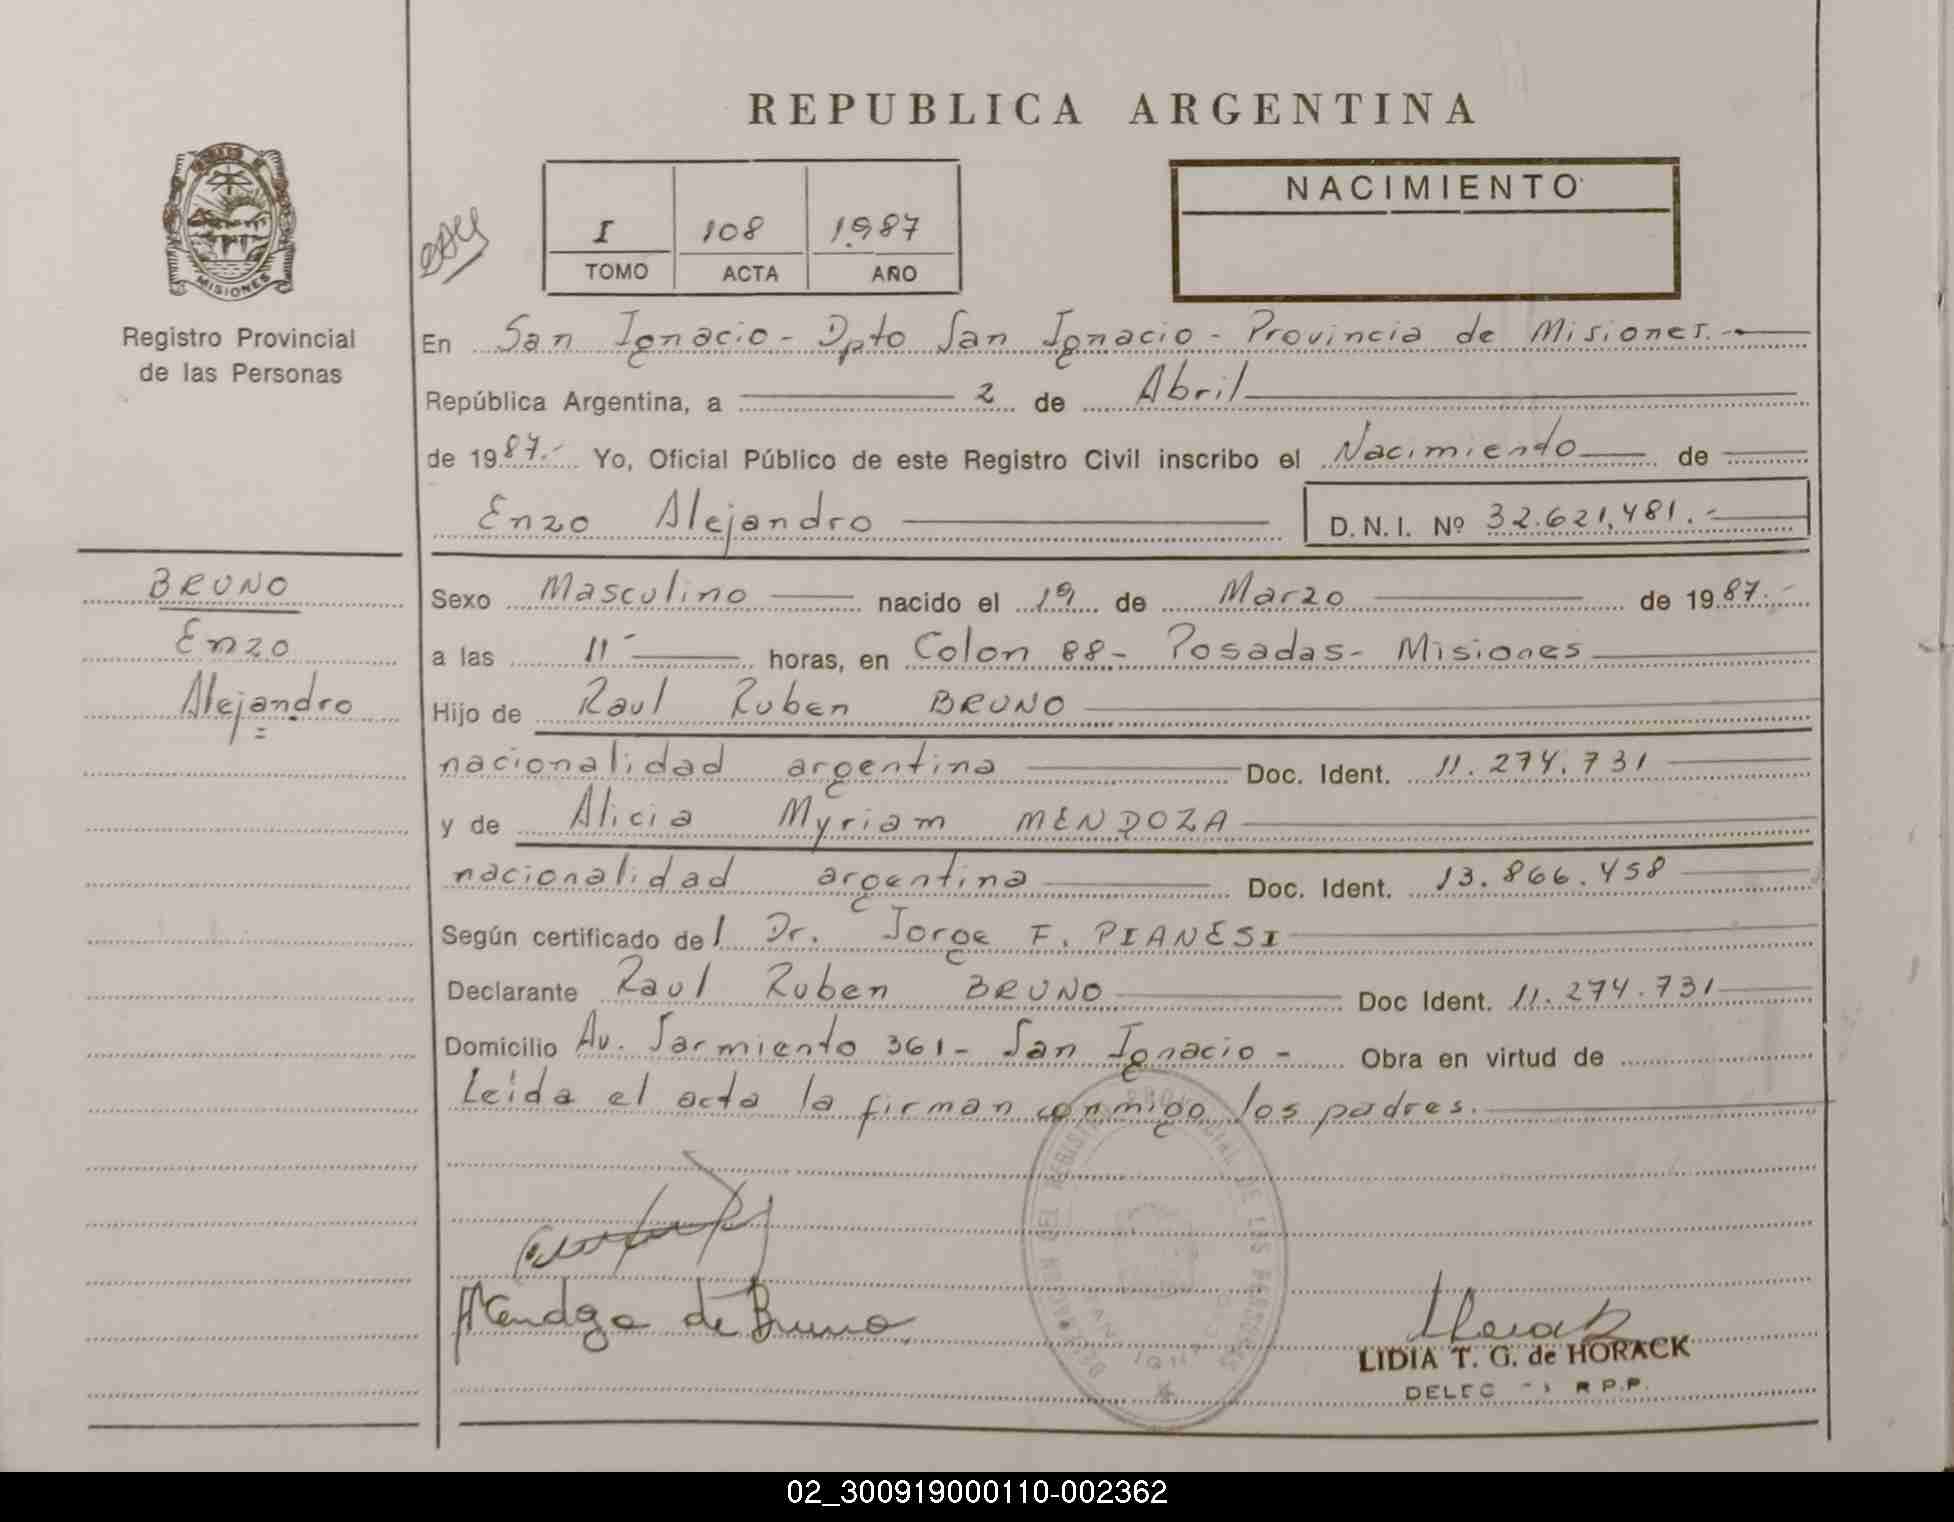 REPUBLICA ARGENTINA
MISIONES
Registro Provincial
de las Personas
I 108 1987
TOMO ACTA AÑO
NACIMIENTO
En San Ignacio - Dpto San Ignacio - Provincia de Misiones.-
República Argentina, a 2 de Abril
de 1987.- Yo, Oficial Público de este Registro Civil inscribo el Nacimiento de
Enzo Alejandro D.N.I. Nº 32.621.481.-
BRUNO
Enzo
Alejandro
Sexo Masculino nacido el 19 de Marzo de 1987.-
a las 11- horas, en Colon 88- Posadas- Misiones
Hijo de Raul Ruben BRUNO
nacionalidad argentina Doc. Ident. 11.274.731
y de Alicia Myriam MENDOZA
nacionalidad argentina Doc. Ident. 13.866.458
Según certificado del Dr. Jorge F. PIANESI
Declarante Raul Ruben BRUNO Doc Ident. 11.274.731
Domicilio Av. Sarmiento 361- San Ignacio - Obra en virtud de
Leida el acta la firman conmigo los padres.
DEL REGISTRO PROVINCIAL DE LAS PERSONAS
SAN IGNACIO
Mendoza de Bruno
LIDIA T. G. de HORACK
R.P.P.
02_300919000110-002362